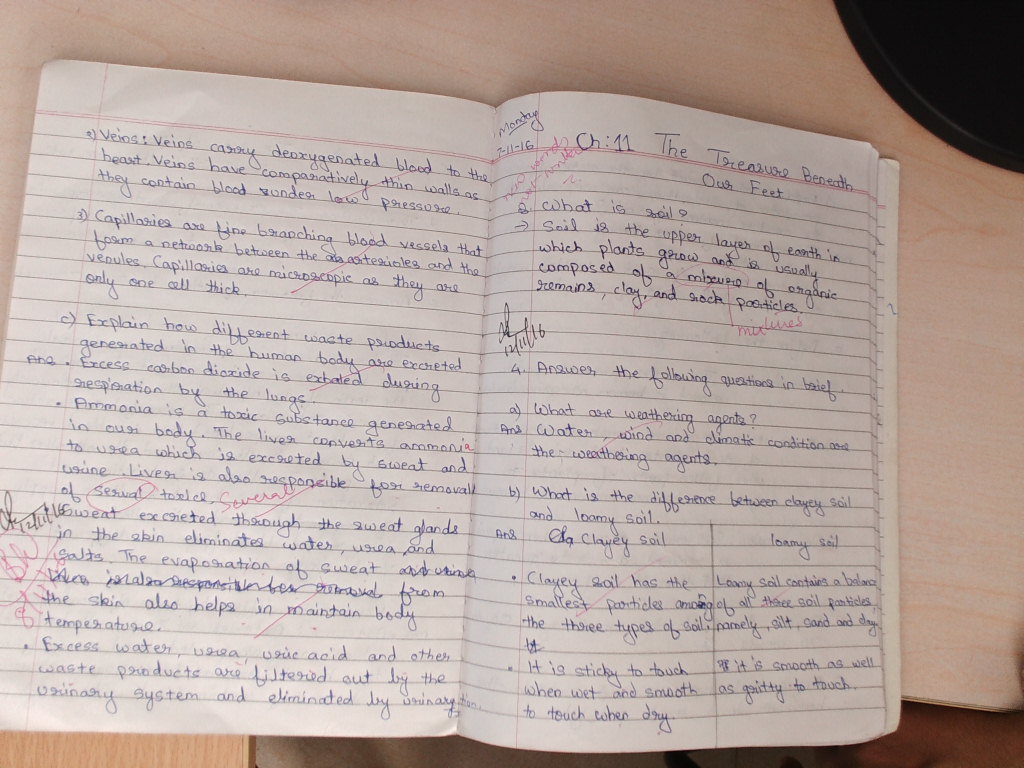 2) Veins: Veins carry deoxygenated blood to the
heart. Veins have comparatively thin walls as
they contain blood under low pressure.
3) Capillaries are fine branching blood vessels that
form a network between the arterioles and the
venules. Capillaries are microscopic as they are
only one cell thick.
c) Explain how different waste products
generated in the human body are excreted
Ans • Excess carbon dioxide is exhaled during
respiration by the lungs.
• Ammonia is a toxic substance generated
in our body. The liver converts ammonia
to urea which is excreted by sweat and
urine. Liver is also responsible for removal
of serval toxics. Several
12/11/16
Sweat excreted through the sweat glands
in the skin eliminates water, urea, and
salts. The evaporation of sweat and urine
liver is also responsible for removal from
the skin also helps in maintain body
temperature.
• Excess water, urea, uric acid and other
waste products are filtered out by the
urinary system and eliminated by urination.
Monday
7-11-16
Ch: 11 The Treasure Beneath
Our Feet
Q. What is soil?
→ Soil is the upper layer of earth in
which plants grow and is usually
composed of a mixure of organic
remains, clay, and rock particles.
mixtures
12/11/16
4. Answer the following questions in brief.
a) What are weathering agents?
Ans Water, wind and climatic condition are
the weathering agents.
b) What is the difference between clayey soil
and loamy soil.
Ans Clayey soil loamy soil
• Clayey soil has the
smallest particles among
the three types of soil.
Loamy soil contains a balance
of all three soil particles,
namely, silt, sand and clay
• It is sticky to touch
when wet and smooth
to touch when dry.
it is smooth as well
as gritty to touch.